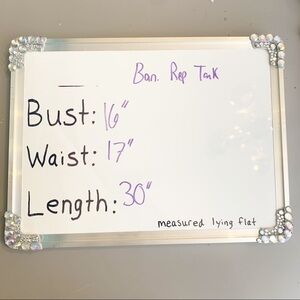 Ban. Rep Tank
Bust: 16"
Waist: 17"
Length: 30"
measured lying flat